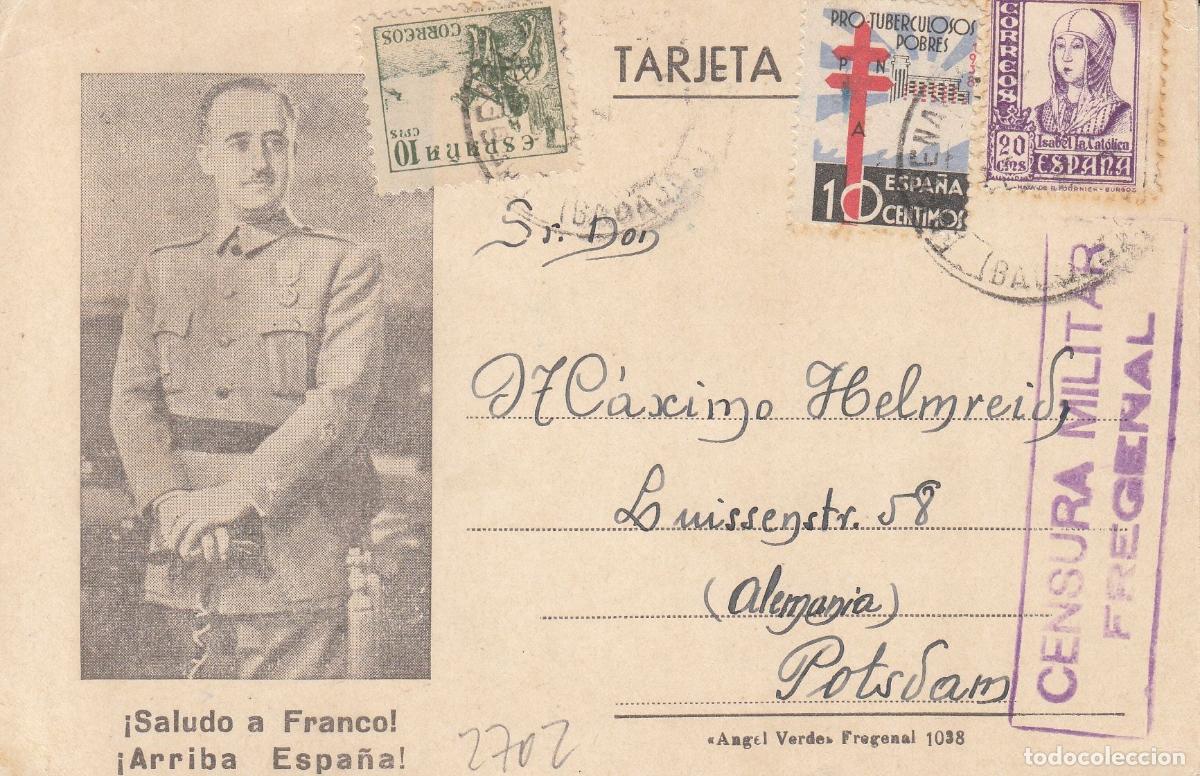 CORREOS
10 CTS
ESPAÑA
TARJETA
PRO-TUBERCULOSOS
POBRES
1938
P N
A
10 ESPAÑA
CENTIMOS
CORREOS
20
cts
Isabel la Católica
ESPAÑA
(BADAJOZ)
(BADAJOZ)
Sr. Don
Máximo Helmreich
Luissenstr. 58
(Alemania)
Potsdam
CENSURA MILITAR
FREGENAL
¡Saludo a Franco!
¡Arriba España!
2702
«Angel Verde» Fregenal 1038
todocoleccion